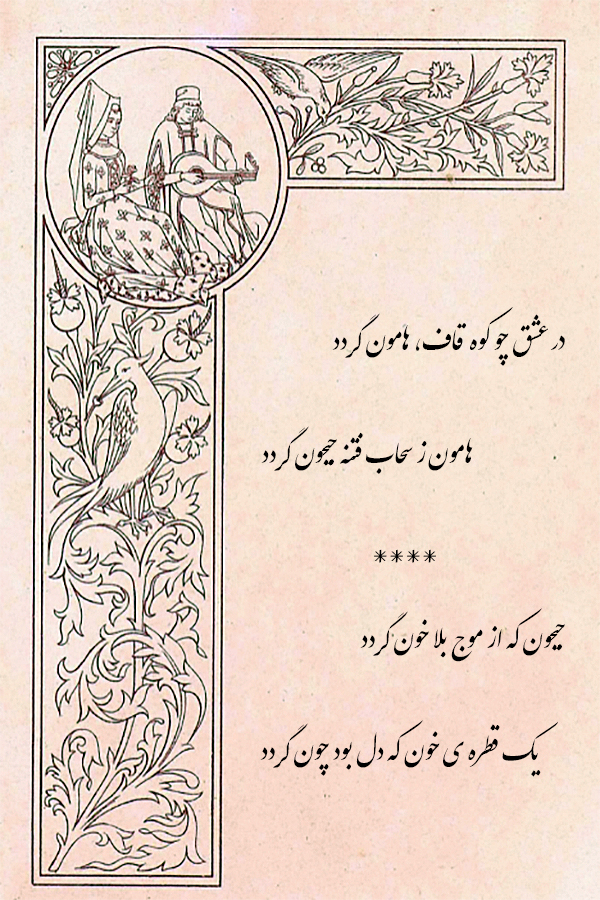 در عشق چو کوه قاف، هامون گردد
هامون ز سحاب فتنه جیحون گردد
****
جیحون که از موج بلا خون گردد
یک قطره ی خون که دل بود چون گردد